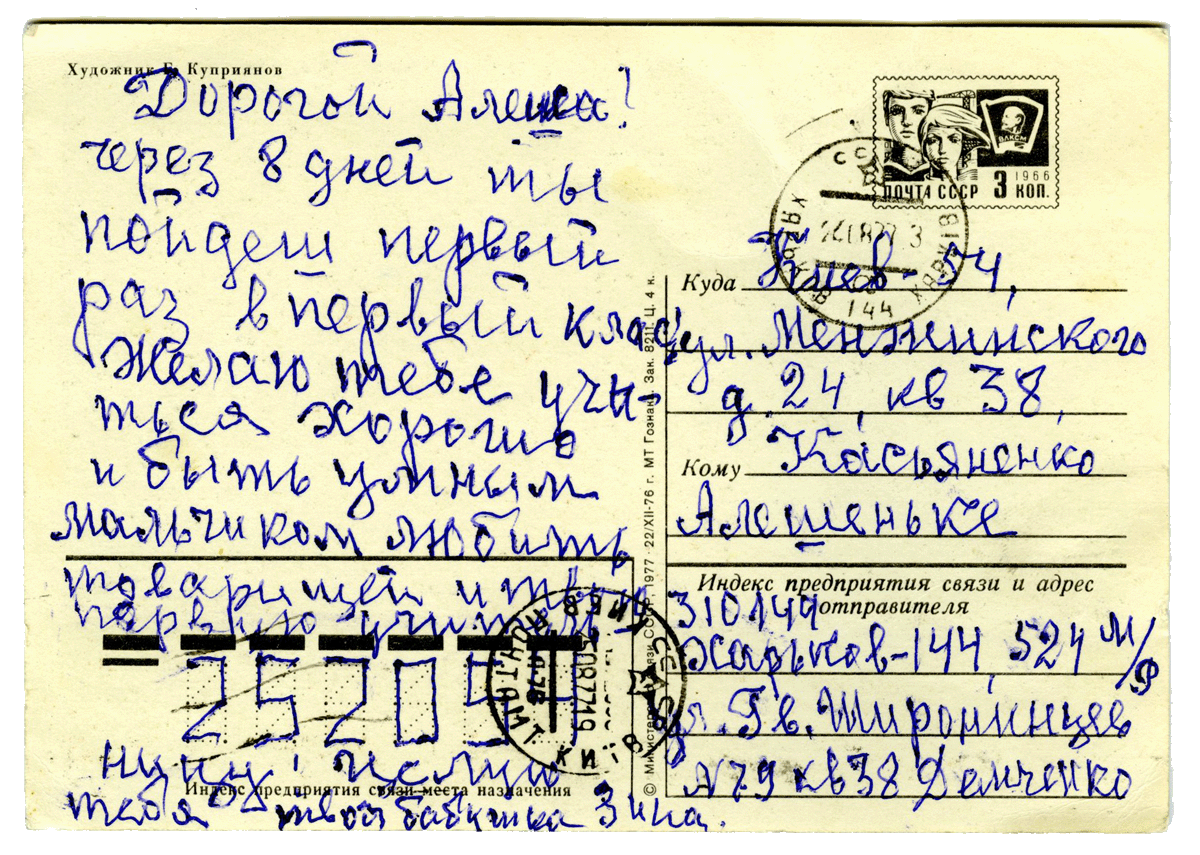 Художник Е. Куприянов
Дорогой Алеша!
через 8 дней ты
пойдеш первый
раз в первый клас,
Желаю тебе учи-
ться хорошо
и быть умным
мальчиком любить
товарищей и твою
первую учитель-
252054
ницу. Целую
Индекс предприятия связи места назначения
тебя — твоя бабушка Зина.
ПОЧТА СССР 3 КОП.
1966
ВЛКСМ
СССР
ХАРЬКОВ
ХАРКІВ
144
Куда Киев-54,
ул. Менжинского
д. 24, кв 38,
Кому Касьяненко
Алешеньке
Индекс предприятия связи и адрес
отправителя
310144
Харьков-144, 524 м/р
ул. Гв. Широнинцев
№79 кв38 Демченко
© Министерство связи СССР. 1977 · 22/XII-76 г. МТ Гознака. Зак. 8211. Ц. 4 к.